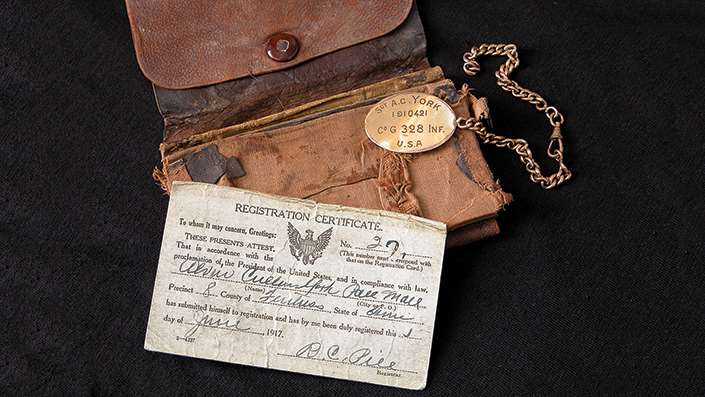 SGT A.C. YORK
1910421
CO G 328 INF.
U.S.A
REGISTRATION CERTIFICATE.
To whom it may concern, Greetings: No. 27,
THESE PRESENTS ATTEST, (This number must correspond with
That is accordance with the that on the Registration Card.)
proclamation of the President of the United States, and in compliance with law,
Alvin Cullum York Pall Mall
(Name) (City or P. O.)
Precinct 8 County of Fentress State of Tenn
has submitted himself to registration and has by me been duly registered this
day of June, 1917.
R. C. Pile
Registrar.